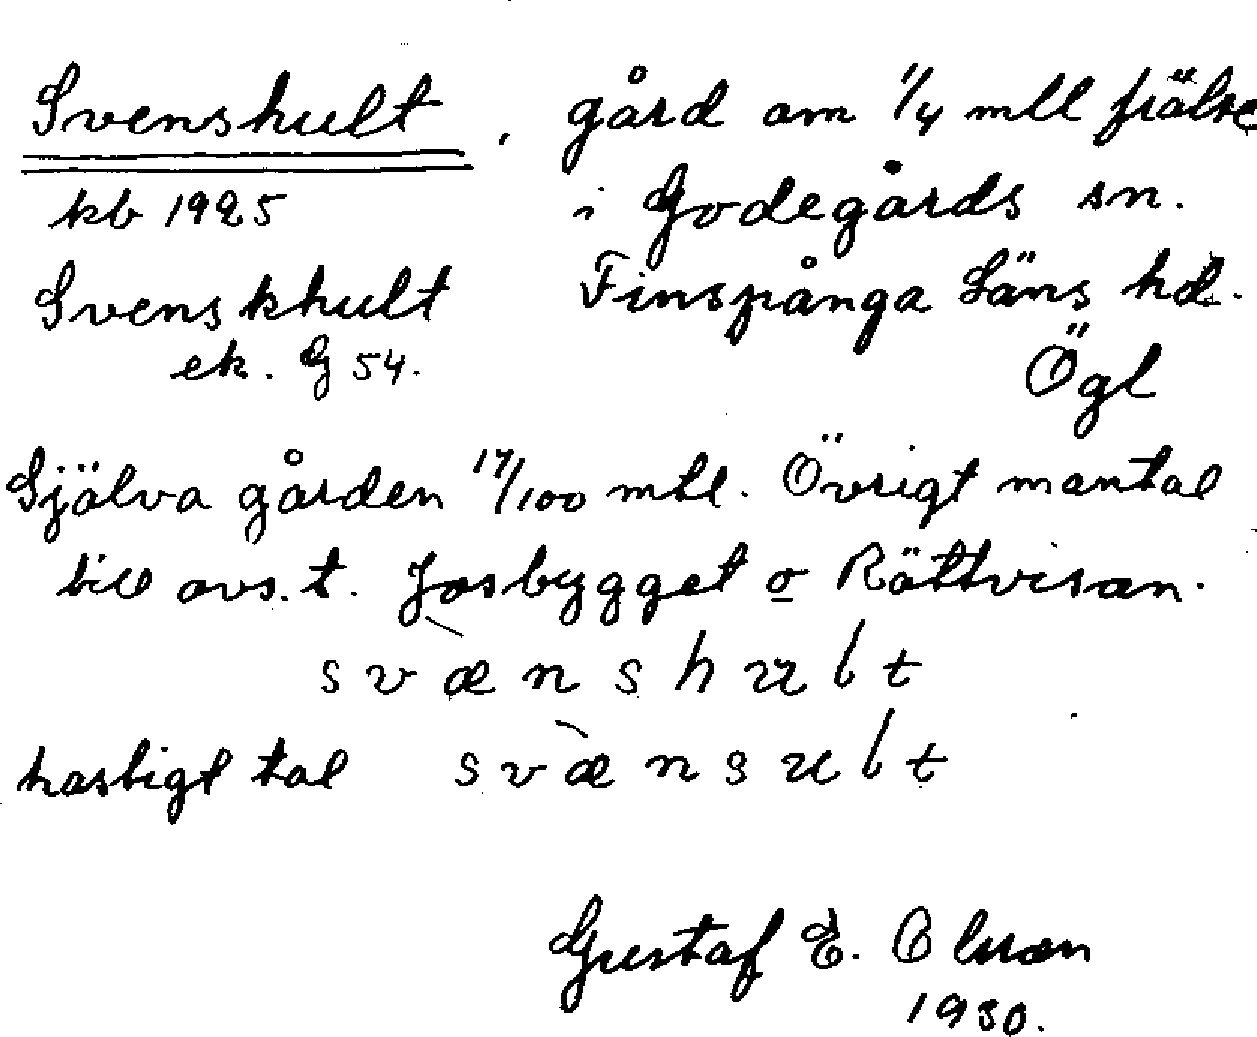 Svenshult, gård om 1/4 mtl frälse
kb 1925
i Godegårds sn.
Svenskhult
Finspånga läns hd.
ek. G 54.
Ögl
Själva gården 17/100 mtl. Övrigt mantal
till avs. t. Josbygget o Rättvisan.
svænshult
hastigt tal svænsult
Gustaf E. Olson
1930.